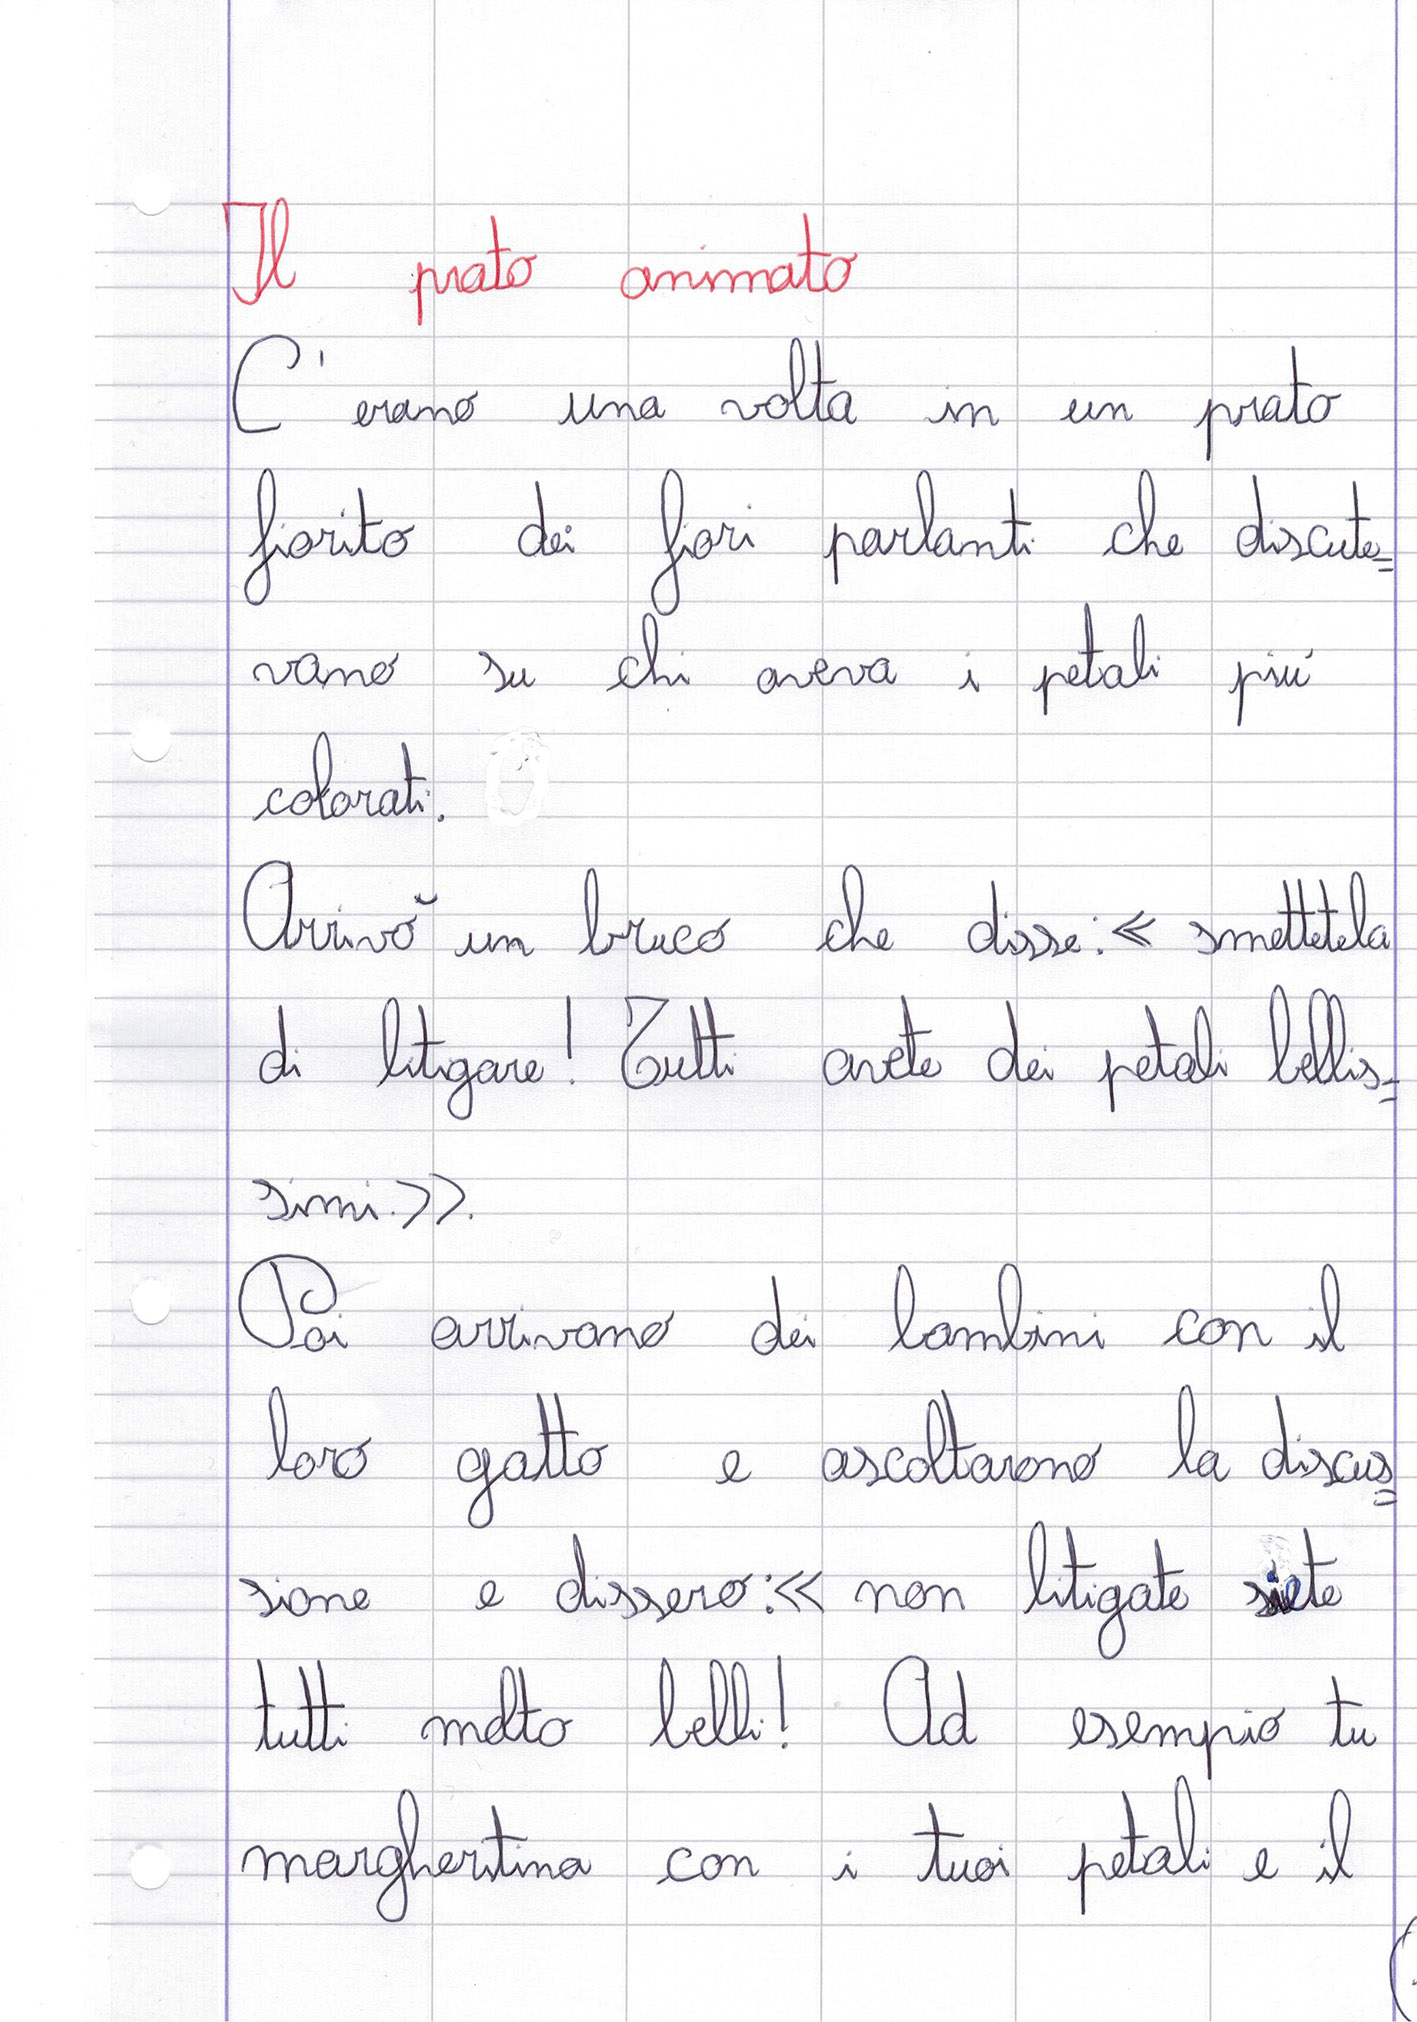 Il prato animato
C'erano una volta in un prato
fiorito dei fiori parlanti che discute=
vano su chi aveva i petali più
colorati.
Arrivò un bruco che disse:« smettetela
di litigare! Tutti avete dei petali bellis=
simi.»».
Poi arrivano dei bambini con il
loro gatto e ascoltarono la discus=
sione e dissero:« non litigate siete
tutti molto belli! Ad esempio tu
margheritina con i tuoi petali e il